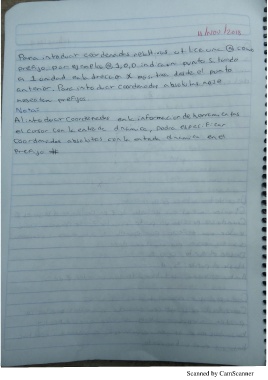 Para introducir coordenadas relativas, utilice una @ como
prefijo. por ejemplo @ 1,0,0 indica un punto situado
a 1 unidad en la dirección X positiva desde el punto
anterior. Para introducir coordenadas absolutas no se
necesitan prefijo.
Nota:
Al introducir Coordenadas en la información de herramientas
del cursor con la entrada dinamica, podra especificar
Coordenadas absolutas con la entrada dinamica en el
Prefijo #
Scanned by CamScanner